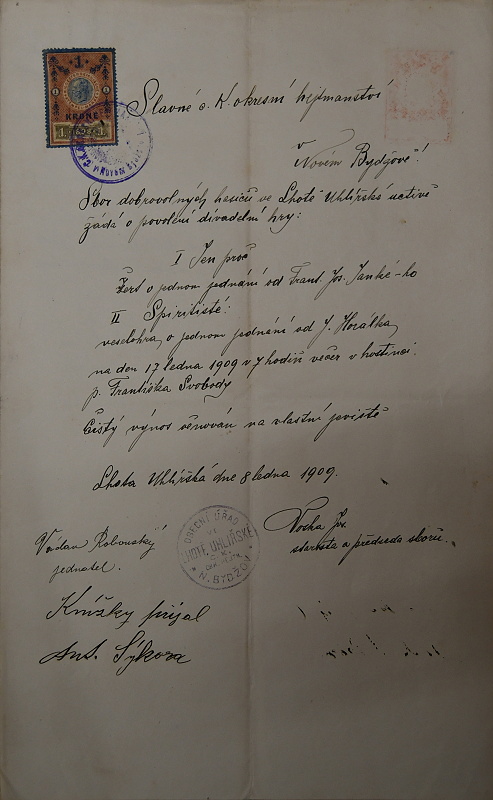 1
1 1
KRONE
Slavné c. K. okresní hejtmanství
v
Novém Bydžově!
Sbor dobrovolných hasičů ve Lhotě Uhlířské uctivě
žádá o povolení divadelní hry:
I Jen proč
Žert o jednom jednání od Frant. Jos.
II Spiritisté:
veselohra o jednom jednání od J. Horálka,
na den 17 ledna 1909 v 7 hodin večer v hostinci
p. Františka Svobody
Čistý výnos věnován na vlastní jeviště
Lhota Uhlířská dne 8 ledna 1909.
OBECNÍ ÚŘAD
VE
LHOTĚ UHLÍŘSKÉ
N. BYDŽOV
Václav
jednatel.
Jos.
starosta a předseda sboru.
Knížky přijal
Ant. Sýkora